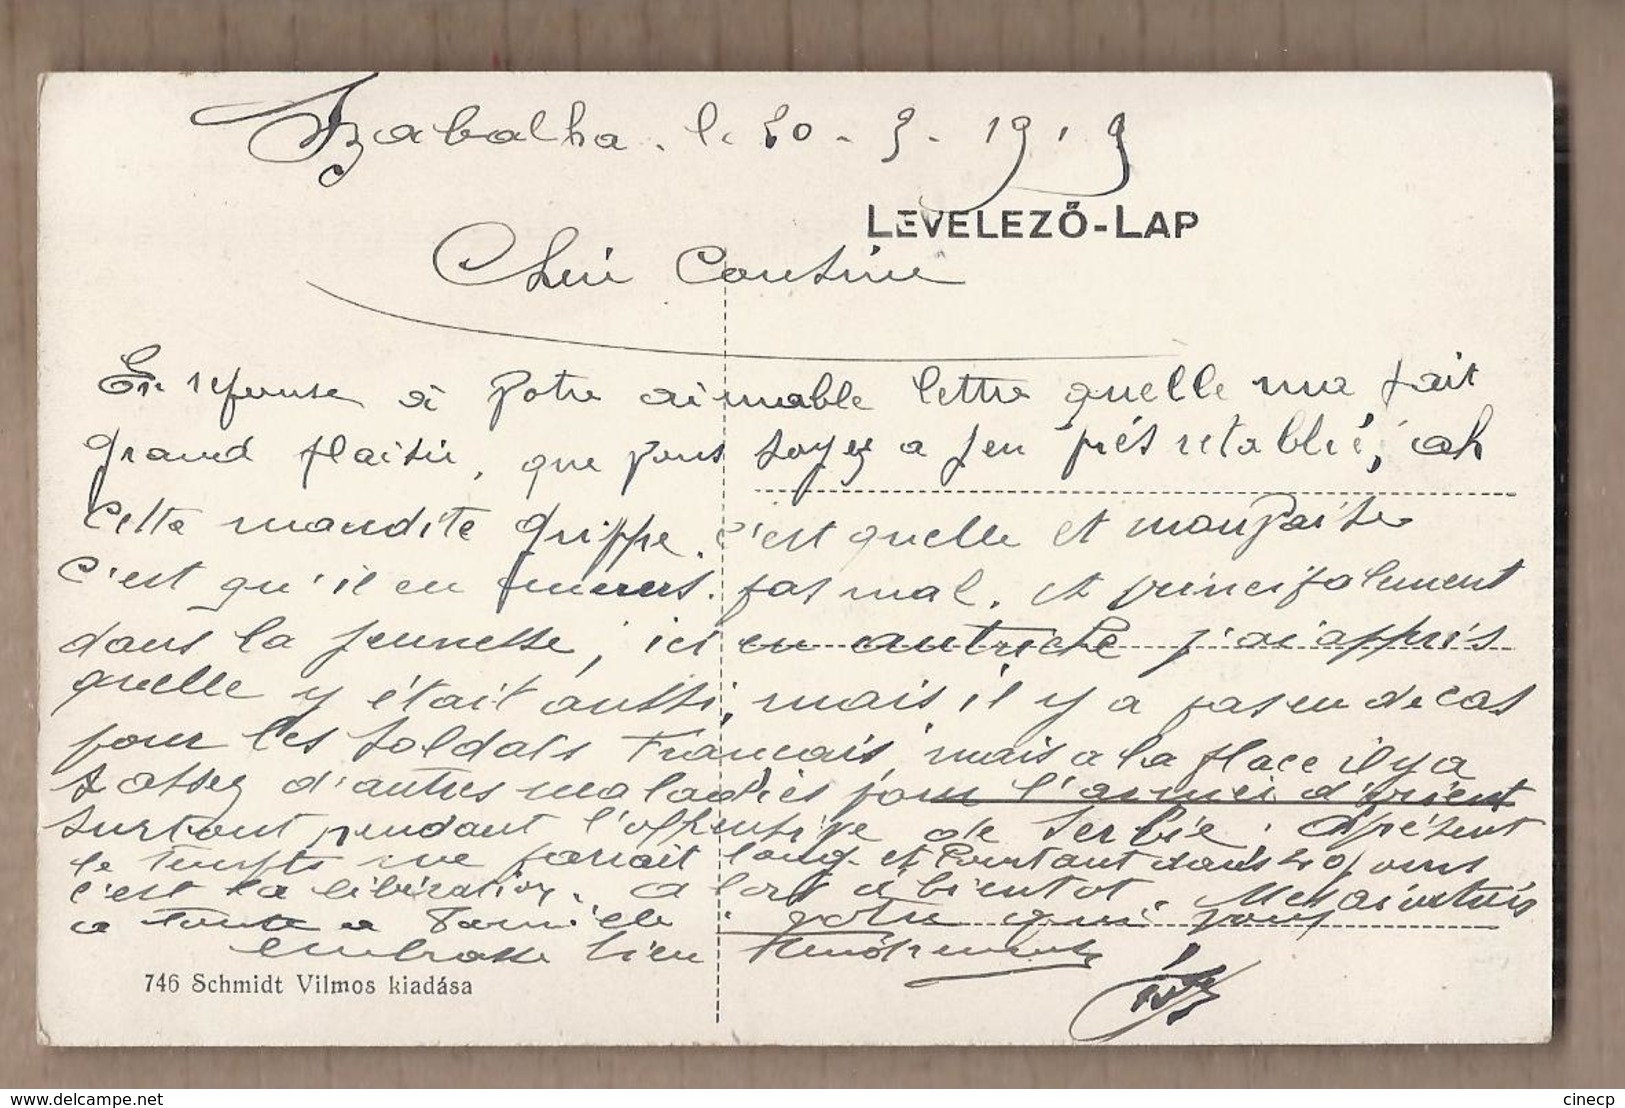 Szabalha. le 20 - 3 - 1919
LEVELEZŐ-LAP
Cheri Cousine
En reponse a Votre aimable lettre quelle me fait
grand plaisir, que vous soyez a peu prés retablié, ah
cette maudite Grippe. c'est quelle et mauvaise
C'est qu'il en meurs. pas mal. et principalement
dans la jeunesse, ici en autriche j'ai appris
quelle y était aussi, mais il y a pas eu de cas
pour les soldats Francais, mais a la place il y a
assez d'autres maladies pour l'armée d'orient
surtout pendant l'offensive de Serbie. Apésent
le temps me parait long et Pourtant dans 20 jours
c'est la libération. alors a bientot. Mes
a toute a Famille. votre qui vous
embrasse bien
746 Schmidt Vilmos kiadása
delcampe.net
cinecp